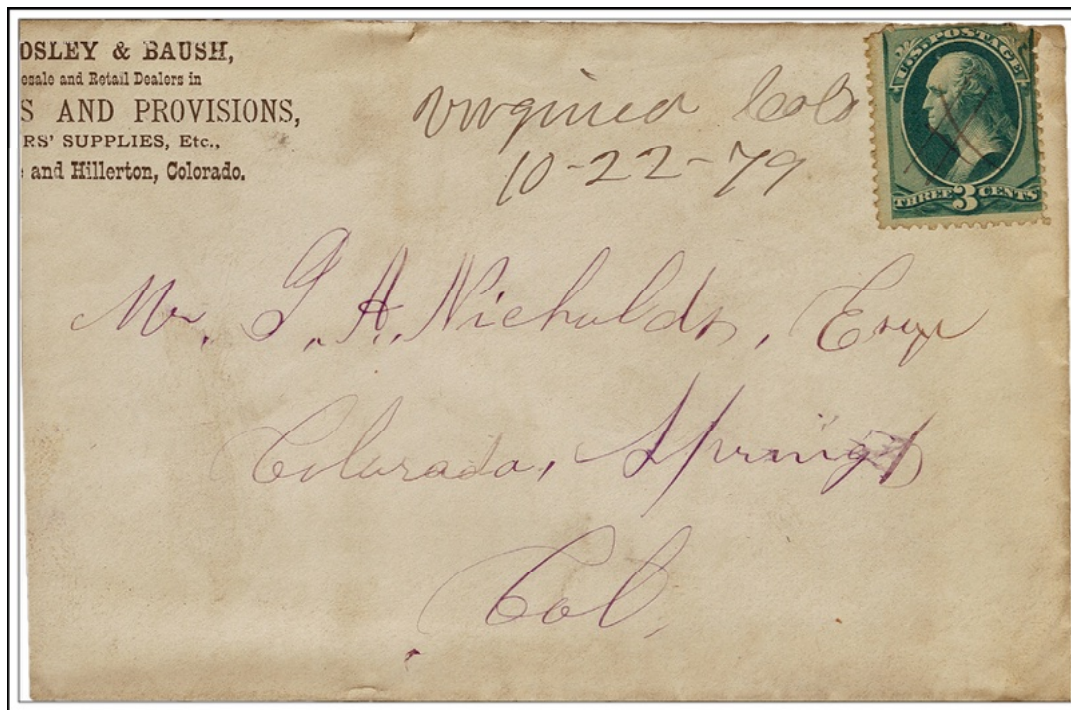 OSLEY & BAUSH,
esale and Retail Dealers in
S AND PROVISIONS,
RS' SUPPLIES, Etc.,
and Hillerton, Colorado.
Virginia Colo
10-22-79
U.S. POSTAGE
THREE 3 CENTS
Mr. G. A. Nicholds, Esqr
Colorado, Springs
Col.